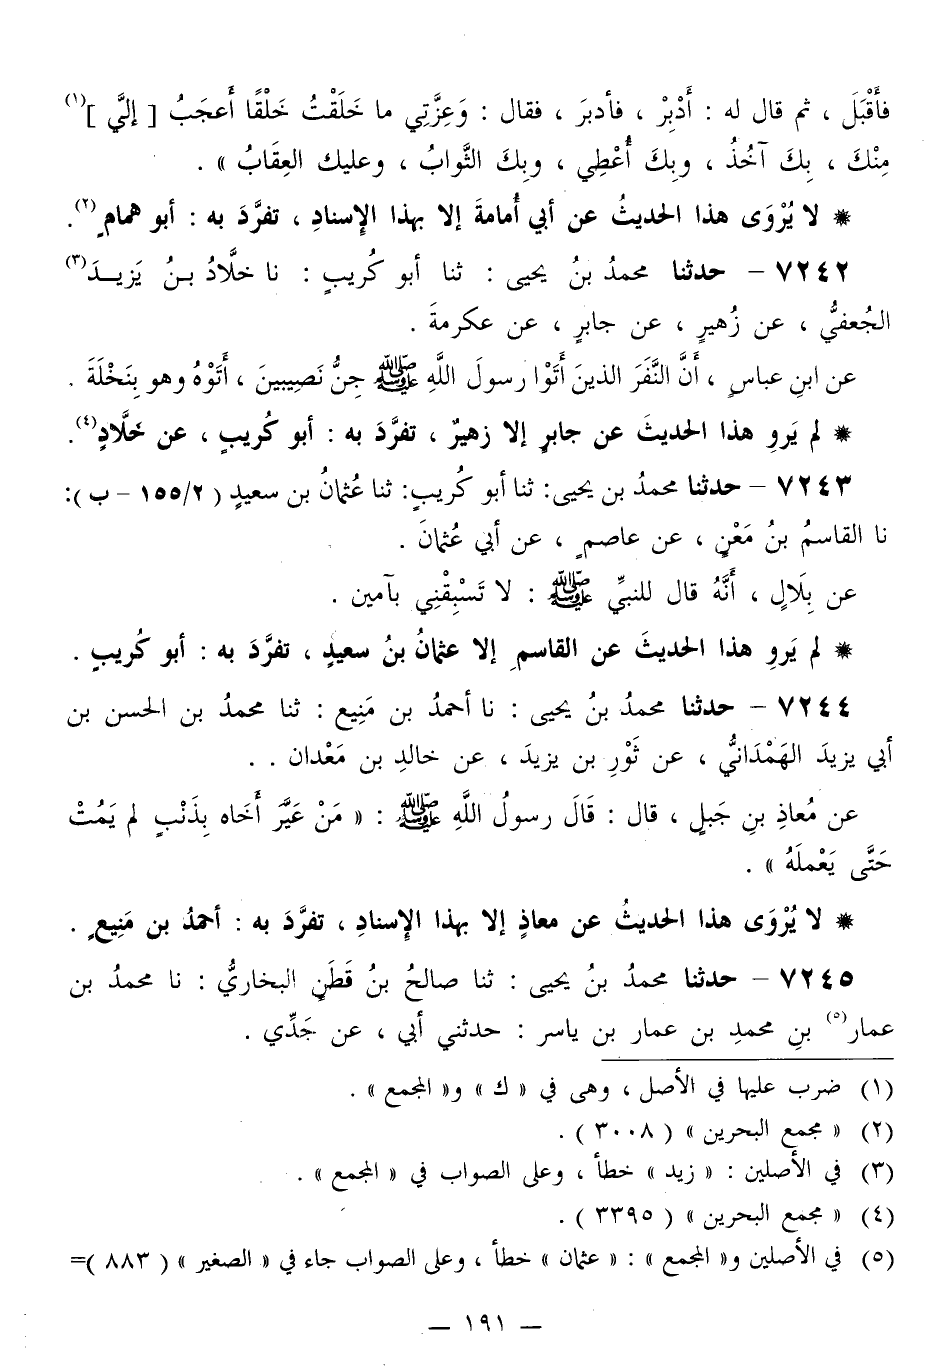 فَأَقْبَلَ ، ثم قال له : أَدْبِرْ ، فأدبرَ ، فقال : وَعِزَّتِي ما خَلَقْتُ خَلْقًا أَعجَبُ [ إليَّ ] (١)
مِنْكَ ، بِكَ آخُذُ ، وبِكَ أُعْطِي ، وبِكَ الثَّوابُ ، وعليك العِقَابُ » .
* لا يُرْوَى هذا الحديثُ عن أبي أُمامةَ إلا بهذا الإسنادِ ، تفرَّدَ به : أبو همامٍ (٢).
٧٢٤٢ – حدثنا محمدُ بنُ يحيى : ثنا أبو كُريبٍ : نا خلَّادُ بـنُ يَزيـدَ (٣)
الجُعفيُّ ، عن زُهيرٍ ، عن جابرٍ ، عن عكرمةَ .
عن ابنِ عباسٍ ، أنَّ النَّفَرَ الذينَ أَتَوْا رسولَ اللَّهِ ﷺ جِنُّ نَصِيبينَ ، أَتَوْهُ وهو بِنَخْلَةَ .
* لم يَروِ هذا الحديثَ عن جابرٍ إلا زهيرٌ ، تفرَّدَ به : أبو كُريبٍ ، عن خَلَّادٍ (٤).
٧٢٤٣ – حدثنا محمدُ بن يحيى: ثنا أبو كُريبٍ: ثنا عُثمانُ بن سعيدٍ ( ٢/ ١٥٥ – ب ):
نا القاسمُ بنُ مَعْنٍ ، عن عاصمٍ ، عن أبي عُثمانَ .
عن بِلَالٍ ، أنَّهُ قال للنبيِّ ﷺ : لا تَسْبِقْنِي بآمين .
* لم يَروِ هذا الحديثَ عن القاسمِ إلا عثمانُ بنُ سعيدٍ ، تفرَّدَ به : أبو كُريبٍ .
٧٢٤٤ – حدثنا محمدُ بنُ يحيى : نا أحمدُ بن مَنِيع : ثنا محمدُ بن الحسن بن
أبي يزيدَ الهَمْدَانيُّ ، عن ثَوْرِ بن يزيدَ ، عن خالدِ بن مَعْدان . .
عن مُعاذِ بنِ جَبلٍ ، قال : قَالَ رسولُ اللَّهِ ﷺ : « مَنْ عَيَّر أَخَاه بِذَنْبٍ لم يَمُتْ
حَتَّى يَعْملَهُ » .
* لا يُرْوَى هذا الحديثُ عن معاذٍ إلا بهذا الإسنادِ ، تفرَّدَ به : أحمدُ بن مَنِيعٍ .
٧٢٤٥ – حدثنا محمدُ بنُ يحيى : ثنا صالحُ بنُ قَطَنٍ البخاريُّ : نا محمدُ بن
عمار (٥) بنِ محمدِ بن عمار بن ياسر : حدثني أبي ، عن جَدِّي .
(١) ضرب عليها في الأصل ، وهى في « ك » و« المجمع » .
(٢) « مجمع البحرين » ( ٣٠٠٨ ) .
(٣) في الأصلين : « زيد » خطأ ، وعلى الصواب في « المجمع » .
(٤) « مجمع البحرين » ( ٣٣٩٥ ) .
(٥) في الأصلين و« المجمع » : « عثمان » خطأ ، وعلى الصواب جاء في « الصغير » ( ٨٨٣ )=
— ١٩١ —